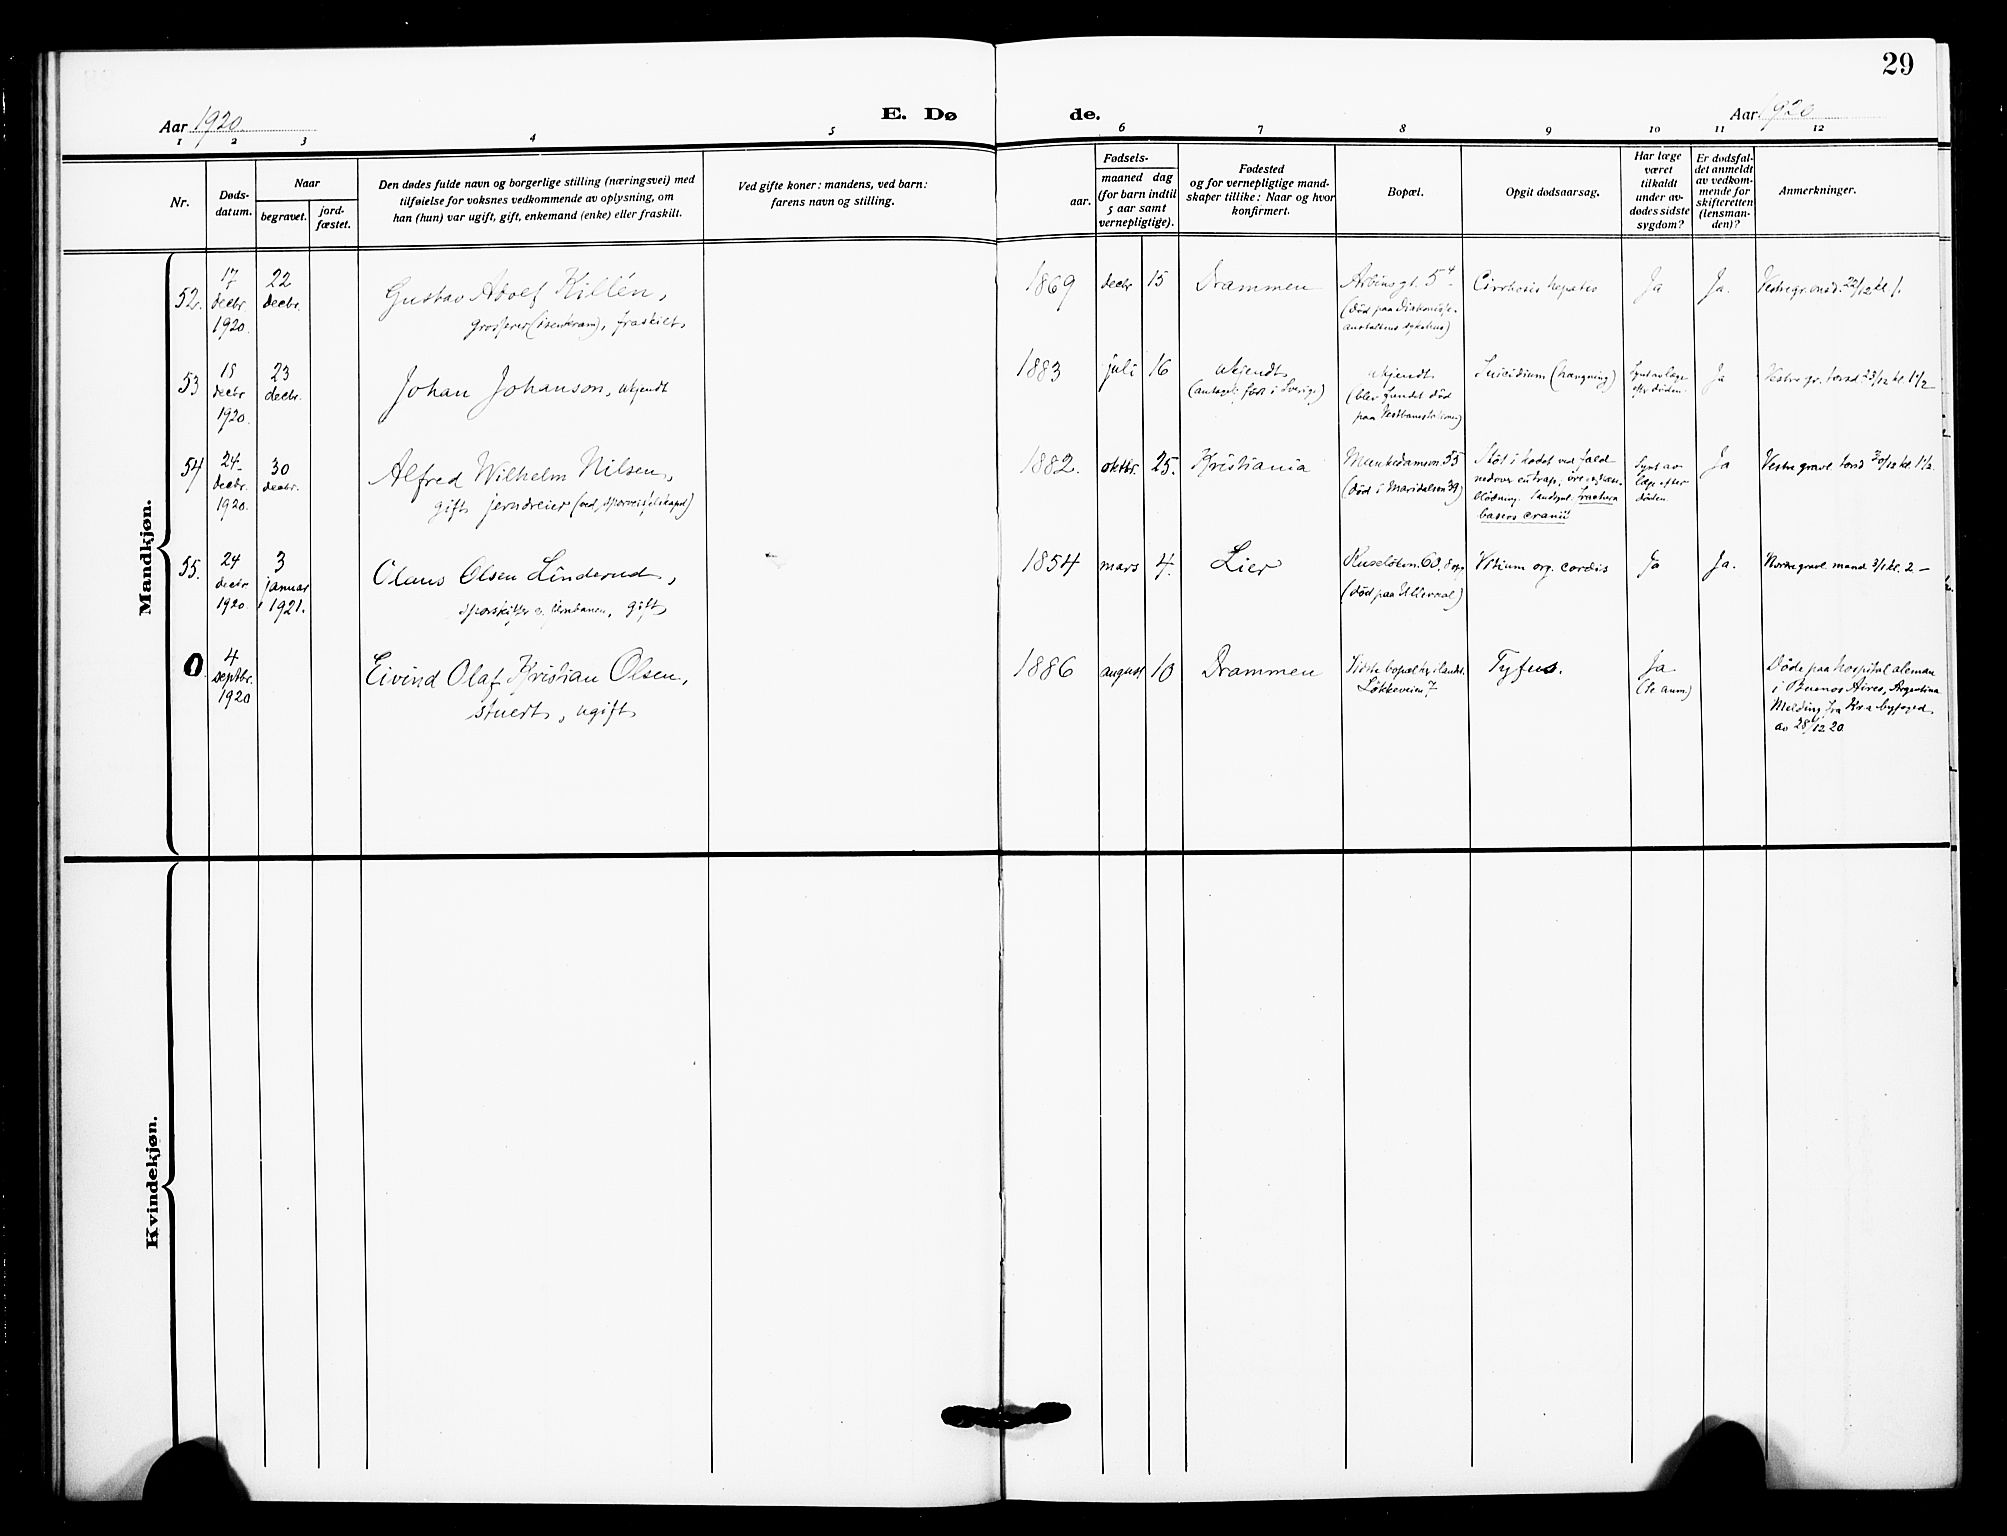 29
Aar 1920
E. Dø
de.
Aar 1920
1 2 3 4 5 6 7 8 9 10 11 12
Nr.
Døds-
datum.
Naar
begravet.
jord-
fæstet.
Den dødes fulde navn og borgerlige stilling (næringsvei) med
tilføielse for voksnes vedkommende av oplysning, om
han (hun) var ugift, gift, enkemand (enke) eller fraskilt.
Ved gifte koner: mandens, ved barn:
farens navn og stilling.
Fødsels-
aar.
maaned dag
(for barn indtil
5 aar samt
vernepligtige).
Fødested
og for vernepligtige mand-
skaper tillike: Naar og hvor
konfirmert.
Bopæl.
Opgit dødsaarsag.
Har læge
været
tilkaldt
under av-
dødes sidste
sygdom?
Er dødsfal-
det anmeldt
av vedkom-
mende for
skifteretten
(lensman-
den)?
Anmerkninger.
Mandkjøn.
52.
17
decbr.
1920.
22
decbr.
Gustav Adolf Killén,
grosserer (isenkram), fraskilt.
1869 decbr 15
Drammen
Arbinsgt. 5
(død paa Diakonisse-
anstaltens sykehus)
Cirrhosis hepatis
Ja
Ja.
Vestre gr. onsd. 22/12 kl 1.
53
18
decbr
1920.
23
decbr.
Johan Johanson, ukjendt
1883 juli 16
ukjendt
(antagel. født i Sverige)
ukjendt
(blev fundet død
paa Vestbanestationen)
Suicidium (hængning)
Synt av læge
eftr døden.
Ja
Vestre gr. torsd 23/12 kl. 1 1/2
54
24
decbr.
1920.
30
decbr.
Alfred Wilhelm Nilsen,
gift, jerndreier (ved sporveisselskapet)
1882. oktbr. 25.
Kristiania
Munkedamsvn. 55
(død i Maridalsvn 39)
Støt i hodet ved fald
nedover en trap;
blødning.
basios cranii
Synt av
læge efter
døden
Ja
Vestre gravl. torsd 30/12 kl. 1 1/2.
55.
24
decbr
1920
3
januar
1921.
Olaus Olsen Linderud,
sporskifter v. jernbanen, gift
1854 mars 4.
Lier
Ruseløkvn. 60,
(død paa Ullevaal)
Vitium org. cordis
Ja
Ja.
Nordre gravl. mand 3/1 kl. 2 –
0
4
septbr.
1920
Eivind Olaf Kristian Olsen,
stuert, ugift
1886 august 10
Drammen
Sidste bopæl her i landet.
Løkkeveien 7
Tyfus.
Ja
(se anm)
Døde paa hospital aleman
i Buenos Aires, Argentina
Melding fra Kra byfoged
av 28/12 20.
Kvindekjøn.